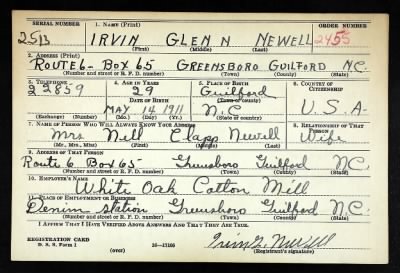 SERIAL NUMBER 1. NAME (Print) ORDER NUMBER
IRVIN GLENN NEWELL 2455
(First) (Middle) (Last)
2. ADDRESS (Print)
ROUTE 6- BOX 65 GREENSBORO GUILFORD N.C.
(Number and street or R. F. D. number) (Town) (County) (State)
3. TELEPHONE 4. AGE IN YEARS 5. PLACE OF BIRTH 6. COUNTRY OF CITIZENSHIP
22859 29 Guilford
DATE OF BIRTH (Town or county)
MAY 14 1911 N.C U.S.A-
(Exchange) (Number) (Mo.) (Day) (Yr.) (State or country)
7. NAME OF PERSON WHO WILL ALWAYS KNOW YOUR ADDRESS 8. RELATIONSHIP OF THAT PERSON
Mrs Nell Clapp Newell Wife
(Mr., Mrs., Miss) (First) (Middle) (Last)
9. ADDRESS OF THAT PERSON
Route 6 Box 65- Greensboro Guilford N.C.
(Number and street or R. F. D. number) (Town) (County) (State)
10. EMPLOYER'S NAME
White Oak Cotton Mill
11. PLACE OF EMPLOYMENT OR BUSINESS
Denim Station Greensboro Guilford N.C.
(Number and street or R. F. D. number) (Town) (County) (State)
I AFFIRM THAT I HAVE VERIFIED ABOVE ANSWERS AND THAT THEY ARE TRUE.
REGISTRATION CARD
D. S. S. Form 1 (over) 16-17105 (Registrant's signature)